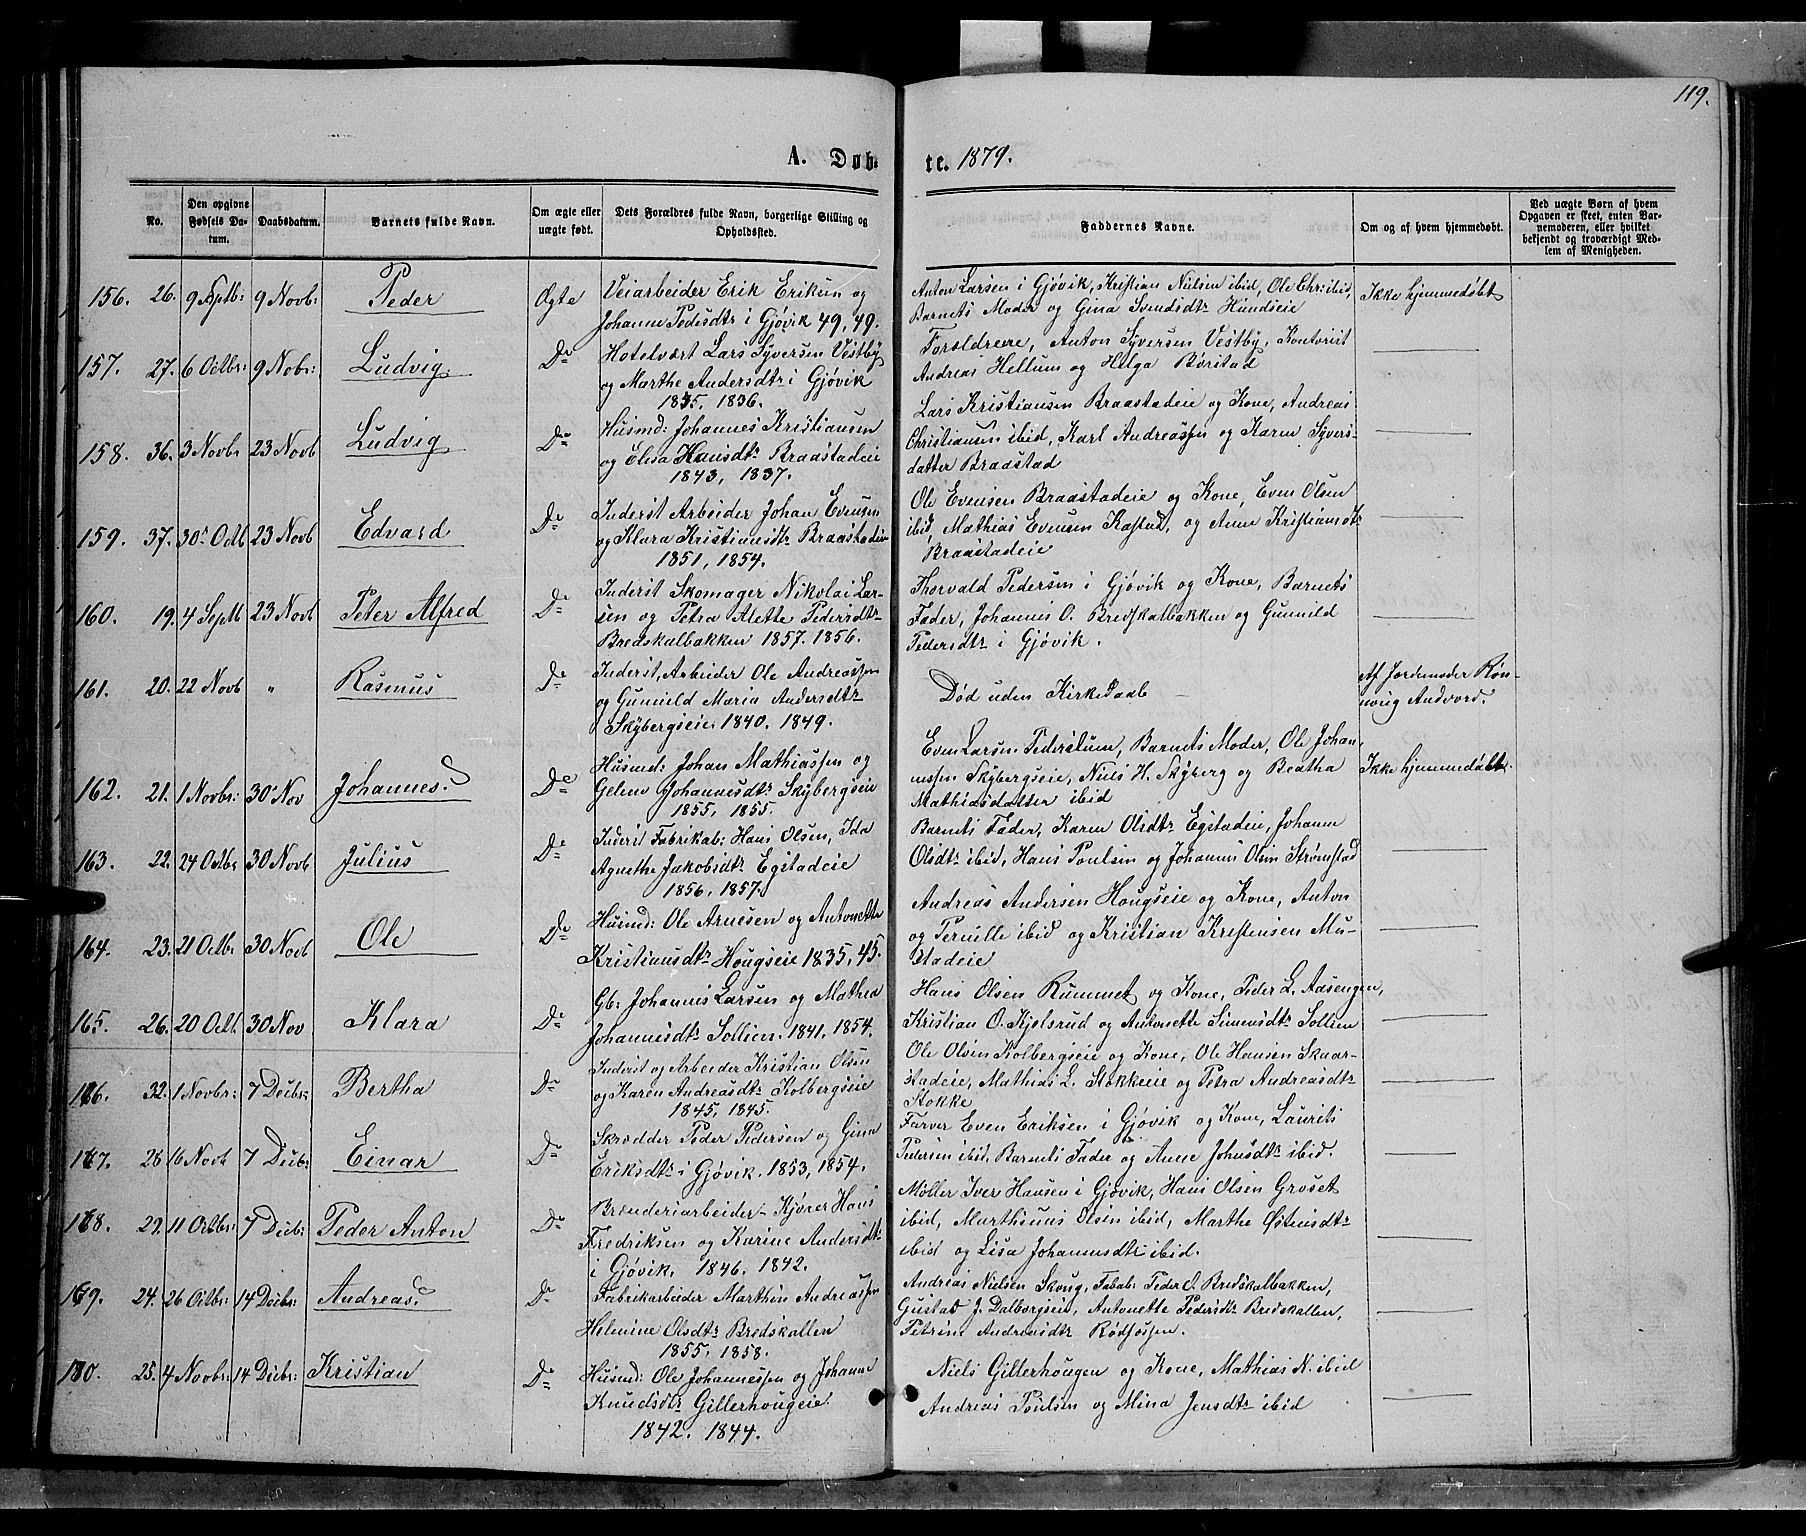 119.
A. Døb- te. 1879.
No.
Den opgivne Fødsels Datum.
Daabsdatum.
Barnets fulde Navn.
Om ægte eller uægte født.
Dets Forældres fulde Navn, borgerlige Stilling og Opholdssted.
Faddernes Navne.
Om og af hvem hjemmedøbt.
Ved uægte Børn af hvem Opgaven er skeet, enten Barnemoderen, eller hvilket bekjendt og troværdigt Medlem af Menigheden.
156. 26. 9 Septb: 9 Novb: Peder Ægte
Veiarbeider Erik Eriksen og
Johanne Pedersdtr i Gjøvik 49, 49.
Anton Larsen i Gjøvik, Kristian Nielsen ibid, Ole Chr: ibid,
Barnets Moder og Gina Svendsdtr Hundseie
Ikke hjemmedøbt
157. 27. 6 Octbr: 9 Nobr: Ludvig. Do
Hotelvært Lars Syversen Vestby
og Marthe Andersdtr i Gjøvik
1835, 1836.
Forældrene, Anton Syversen Vestby, Kontorist
Andreas Hellum og Helga Børstad
158. 36. 3 Novbr 23 Novb Ludvig Do
Husmd: Johannes Kristiansen
og Elisa Hansdtr Braastadeie
1843, 1837.
Lars Kristiansen Braastadeie og Kone, Andreas
Christiansen ibid, Karl Andreassen og Karen Syvers-
datter Braastad
159. 37. 30 Octb 23 Novb Edvard Do
Inderst Arbeider Johan Evensen
og Klara Kristiansdtr Braastadeie
1851, 1854.
Ole Evensen Braastadeie og Kone, Even Olsen
ibid, Mathias Evensen Kastad, og Anne Kristiansdtr
Braastadeie
160. 19. 4 Septb 23 Novb Peter Alfred Do
Inderst Skomager Nikolai Lar-
sen og Petra Alette Pedersdtr
Bredskalbakken 1857. 1856.
Thorvald Pedersen i Gjøvik og Kone, Barnets
Fader, Johannes O. Bredskalbakken og Gunnild
Pedersdtr i Gjøvik.
161. 20. 22 Novb " Rasmus Do
Inderst, Arbeider Ole Andreassen
og Gunnild Maria Andersdtr
Skybergseie 1840. 1849.
Død uden Kirkedaab
Af Jordemoder Røn-
nvig Andvord.
162. 21. 1 Novbr: 30 Nov Johannes. Do
Husmd: Johan Mathiassen og
Geline Johannesdtr Skybergseie
1855, 1855.
Even Larsen Pederstuen, Barnets Moder, Ole Johan-
nessen Skybergseie, Niels H. Skyberg og Beatha
Mathiasdatter ibid
Ikke hjemmedøbt.
163. 22. 24 Octbr 30 Novb Julius Do
Inderst Fabrikab: Hans Olsen, Ida
Agnethe Jakobsdtr Egstadeie
1856, 1857.
Barnets Fader, Karen Olsdtr Egstadeie, Johanne
Olsdtr ibid, Hans Poulsen og Johannes Olsen Strømstad
164. 23. 21 Octbr: 30 Novb Ole Do
Husmd: Ole Arnesen og Antonette
Kristiansdtr Hougseie 1835, 45.
Andreas Andersen Hougseie og Kone, Anton
og Pernille ibid og Kristian Kristensen Mu-
stadeie
165. 26. 20 Octb. 30 Nov Klara Do
Gb: Johannes Larsen og Mathea
Johannesdtr Sollien. 1841. 1854.
Hans Olsen Rummet og Kone, Peder L. Aasengen,
Kristian O. Kjelsrud og Antonette Simensdtr Sollien
166. 32. 1 Novbr: 7 Decbr: Bertha Do
Inderst og Arbeider Kristian Olsen
og Karen Andreasdtr Kolbergseie
1845, 1845.
Ole Olsen Kolbergseie og Kone, Ole Hansen Skaar-
stadeie, Mathias L. Stokkeie og Petra Andreasdtr
Stokke
167. 28. 16 Novb 7 Decbr: Einar Do
Skrædder Peder Pedersen og Gina
Eriksdtr i Gjøvik. 1853, 1854.
Farver Even Eriksen i Gjøvik og Kone, Laurits
Pedersen ibid, Barnets Fader og Anne Johnsdtr ibid.
168. 29. 11 Octbr: 7 Decbr: Peder Anton Do
Brænderiarbeider - Kjører Hans
Fredriksen og Karine Andersdtr
i Gjøvik. 1846. 1842.
Møller Iver Hansen i Gjøvik, Hans Olsen Groset
ibid, Marthinus Olsen ibid, Marthe Østensdtr
ibid og Lisa Johannesdtr ibid.
169. 24. 26 Octbr: 14 Decbr: Andreas. Do
Fabrikarbeider Marthin Andreassen
Helmine Olsdtr Bredskallen
1855, 1858.
Andreas Nielsen Skoug, Fabab: Peder O. Bredskalbakken,
Gustad J. Dalborgseie, Antonette Pedersdtr Bredskallen,
Petrine Andreasdtr Rødfossen.
180. 25. 4 Novbr: 14 Decbr: Kristian Do
Husmd: Ole Johannessen og Johanne
Knudsdtr Gillerhougeie.
1842. 1844.
Niels Gillerhougen og Kone, Mathias N. ibid
Andreas Poulsen og Mina Jensdtr ibid